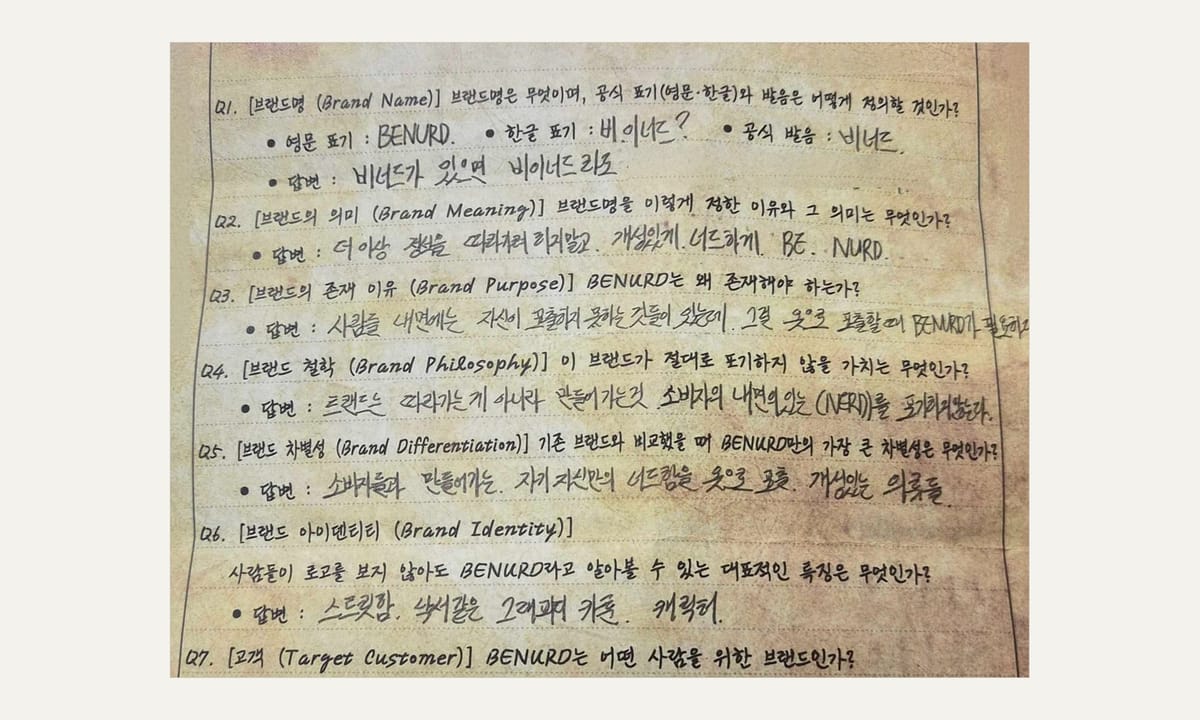 Q1. [브랜드명 (Brand Name)] 브랜드명은 무엇이며, 공식 표기(영문·한글)와 발음은 어떻게 정의할 것인가?
• 영문 표기 : BENURD. • 한글 표기 : 비.이너드? • 공식 발음 : 비너드.
• 답변 : 비너드가 있으면 비이너드라도
Q2. [브랜드의 의미 (Brand Meaning)] 브랜드명을 이렇게 정한 이유와 그 의미는 무엇인가?
• 답변 : 더 이상 정식을 따라가려 하지말고. 개성있게. 너드하게. BE. NURD.
Q3. [브랜드의 존재 이유 (Brand Purpose)] BENURD는 왜 존재해야 하는가?
• 답변 : 사람들 내면에는 자신이 표출하지 못하는 것들이 있는데. 그걸 옷으로 표출할때 BENURD가 필요하
Q4. [브랜드 철학 (Brand Philosophy)] 이 브랜드가 절대로 포기하지 않을 가치는 무엇인가?
• 답변 : 트랜드는 따라가는게 아니라 만들어가는것 소비자의 내면의있는 (NERD)를 포기하지않는다.
Q5. [브랜드 차별성 (Brand Differentiation)] 기존 브랜드와 비교했을 때 BENURD만의 가장 큰 차별성은 무엇인가?
• 답변 : 소비자들과 만들어가는. 자기 자신만의 너드함을 옷으로 표출. 개성있는 의류들.
Q6. [브랜드 아이덴티티 (Brand Identity)]
사람들이 로고를 보지 않아도 BENURD라고 알아볼 수 있는 대표적인 특징은 무엇인가?
• 답변 : 스트릿함. 낙서같은 그래피티 카툰. 캐릭터.
Q7. [고객 (Target Customer)] BENURD는 어떤 사람을 위한 브랜드인가?